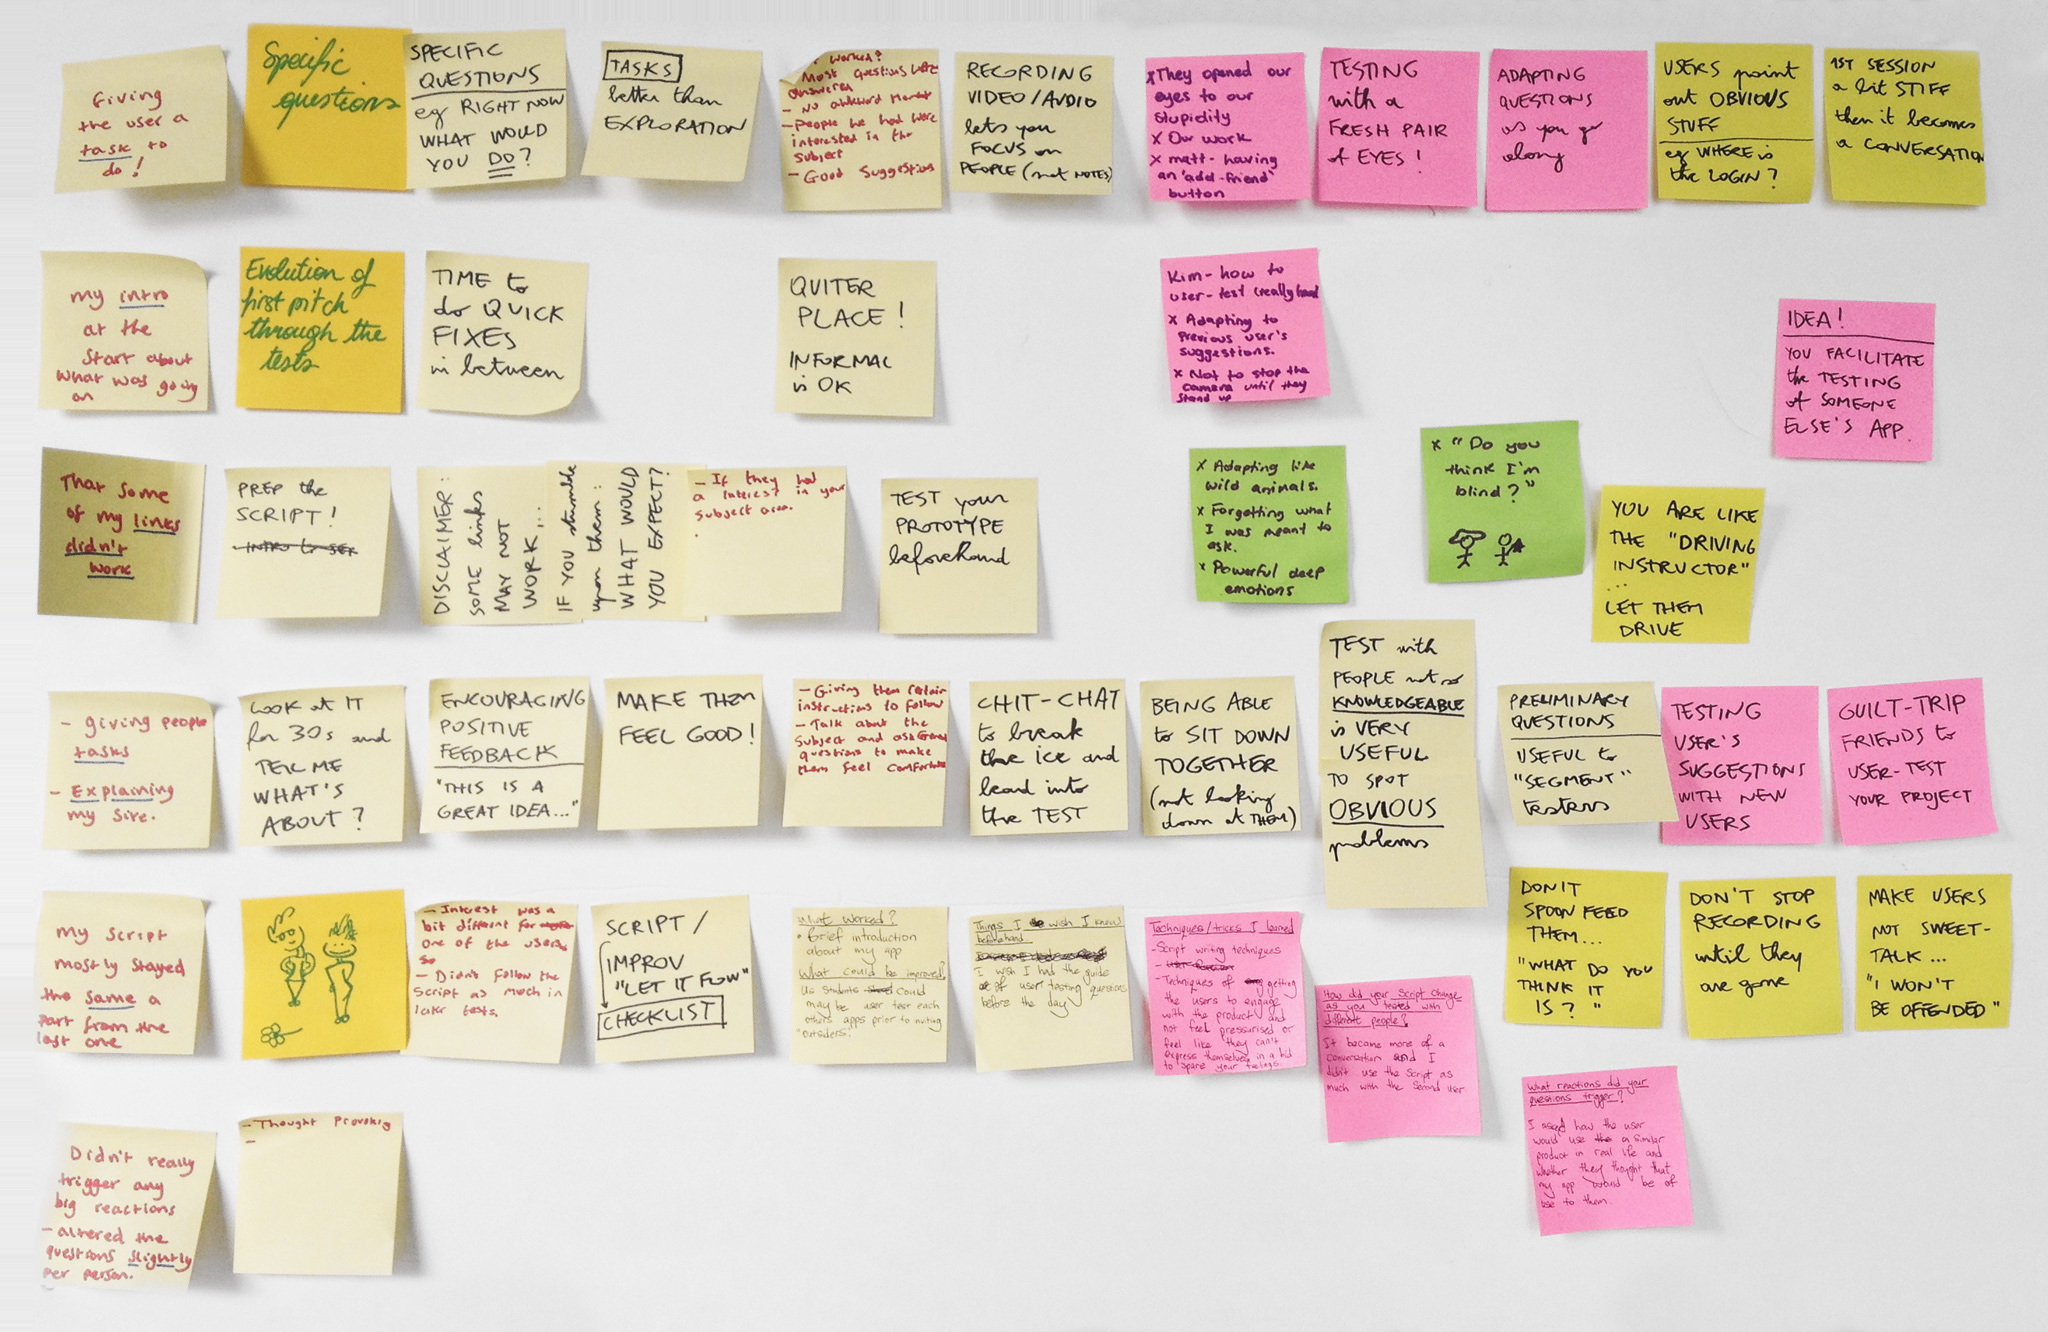 Giving
the user a
task to
do!
Specific
questions
SPECIFIC
QUESTIONS
eg RIGHT NOW
WHAT WOULD
YOU DO?
TASKS
better than
EXPLORATION
worked?
Most questions were
answered
- No awkward moment
- People we had were
interested in the
subject
- Good suggestions
RECORDING
VIDEO/AUDIO
lets you
FOCUS on
PEOPLE (not NOTES)
x They opened our
eyes to our
stupidity
x Our work
x matt- having
an 'add-friend'
button
TESTING
with a
FRESH PAIR
of EYES!
ADAPTING
QUESTIONS
as you go
along
USERS point
out OBVIOUS
STUFF
eg WHERE is
the LOGIN?
1ST SESSION
a bit STIFF
then it becomes
a CONVERSATION
my intro
at the
start about
what was going
on
Evolution of
first pitch
through the
tests
TIME to
do QUICK
FIXES
in between
QUITER
PLACE!
INFORMAL
is OK
Kim- how to
user-test (really hard
x Adapting to
previous user's
suggestions.
x Not to stop the
camera until they
stand up
IDEA!
YOU FACILITATE
the TESTING
of SOMEONE
ELSE'S APP.
That some
of my links
didn't
work
PREP the
SCRIPT!
DISCLAIMER:
SOME links
MAY NOT
WORK...
IF YOU stumble
upon them:
WHAT WOULD
YOU EXPECT?
- If they had
a interest in your
subject area.
TEST your
PROTOTYPE
beforehand
x Adapting like
wild animals.
x Forgetting what
I was meant to
ask.
x Powerful deep
emotions
x "Do you
think I'm
blind?"
YOU ARE LIKE
THE "DRIVING
INSTRUCTOR"
...
LET THEM
DRIVE
- giving people
tasks
- Explaining
my site.
LOOK at IT
for 30s and
TELL ME
WHAT'S
ABOUT?
ENCOURAGING
POSITIVE
FEEDBACK
"THIS IS A
GREAT IDEA..."
MAKE THEM
FEEL GOOD!
- Giving them certain
instructions to follow
- Talk about the
subject and ask General
questions to make
them feel comfortable
CHIT-CHAT
to break
the ice and
lead into
the TEST
BEING ABLE
to SIT DOWN
TOGETHER
(not looking
down at THEM)
TEST with
PEOPLE not so
KNOWLEDGEABLE
is VERY
USEFUL
TO SPOT
OBVIOUS
problems
PRELIMINARY
QUESTIONS
USEFUL to
"SEGMENT"
testers
TESTING
USER'S
SUGGESTIONS
WITH NEW
USERS
GUILT-TRIP
FRIENDS to
USER-TEST
YOUR PROJECT
my script
mostly stayed
the same a
part from the
last one
- Interest was a
bit different for
one of the users
so
- Didn't follow the
script as much in
later tests.
SCRIPT/
IMPROV
"LET IT FLOW"
CHECKLIST
What worked?
• Brief introduction
about my app
What could be improved?
Us students could
maybe user test each
others apps prior to inviting
"outsiders."
Things I wish I knew
beforehand
I wish I had the guide
of user testing questions
before the day
Techniques/tricks I learned
- Script writing techniques
- Techniques of getting
the users to engage
with the product and
not feel pressurised or
feel like they can't
express themselves in a bid
to spare your feelings.
How did your script change
as you tested with
different people?
It became more of a
conversation and I
didn't use the script as
much with the second user
DON'T
SPOON FEED
THEM...
"WHAT DO YOU
THINK IT
IS?"
DON'T STOP
RECORDING
until they
are gone
MAKE USERS
NOT SWEET-
TALK...
"I WON'T
BE OFFENDED"
Didn't really
trigger any
big reactions
- altered the
questions slightly
per person.
- Thought Provoking
-
What reactions did your
questions trigger?
I asked how the user
would use a similar
product in real life and
whether they thought that
my app would be of
use to them.